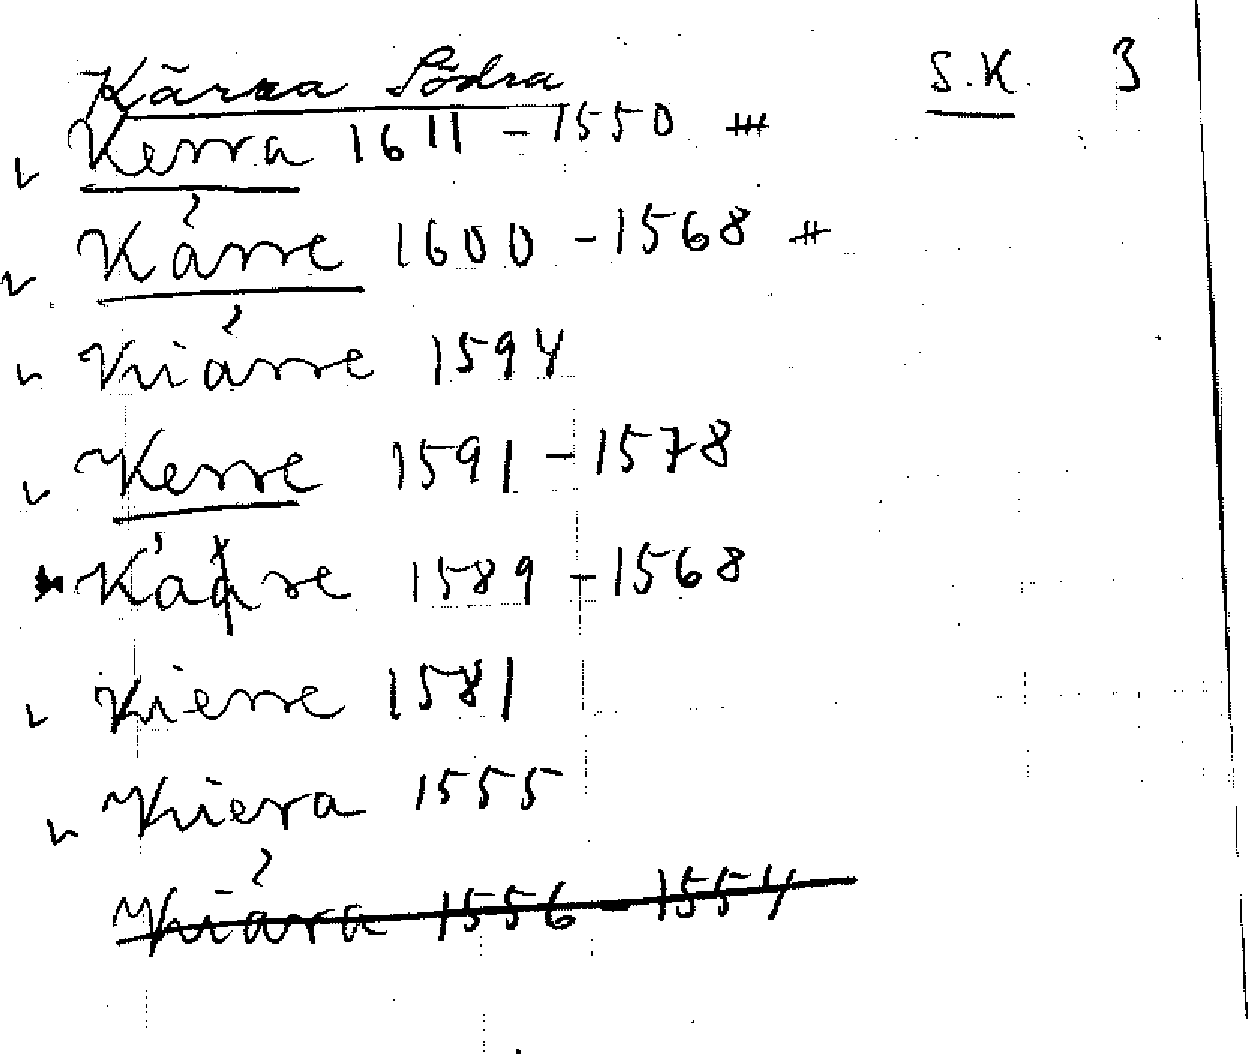 Kärra Södra S.K. 3
Kerra 1611 - 1550 ###
Kårre 1600 - 1568 #
Kiårre 1594
Kerre 1591 - 1578
Kårre 1589 - 1568
Kierre 1581
Kiera 1555
Kiåra 1556 - 1554